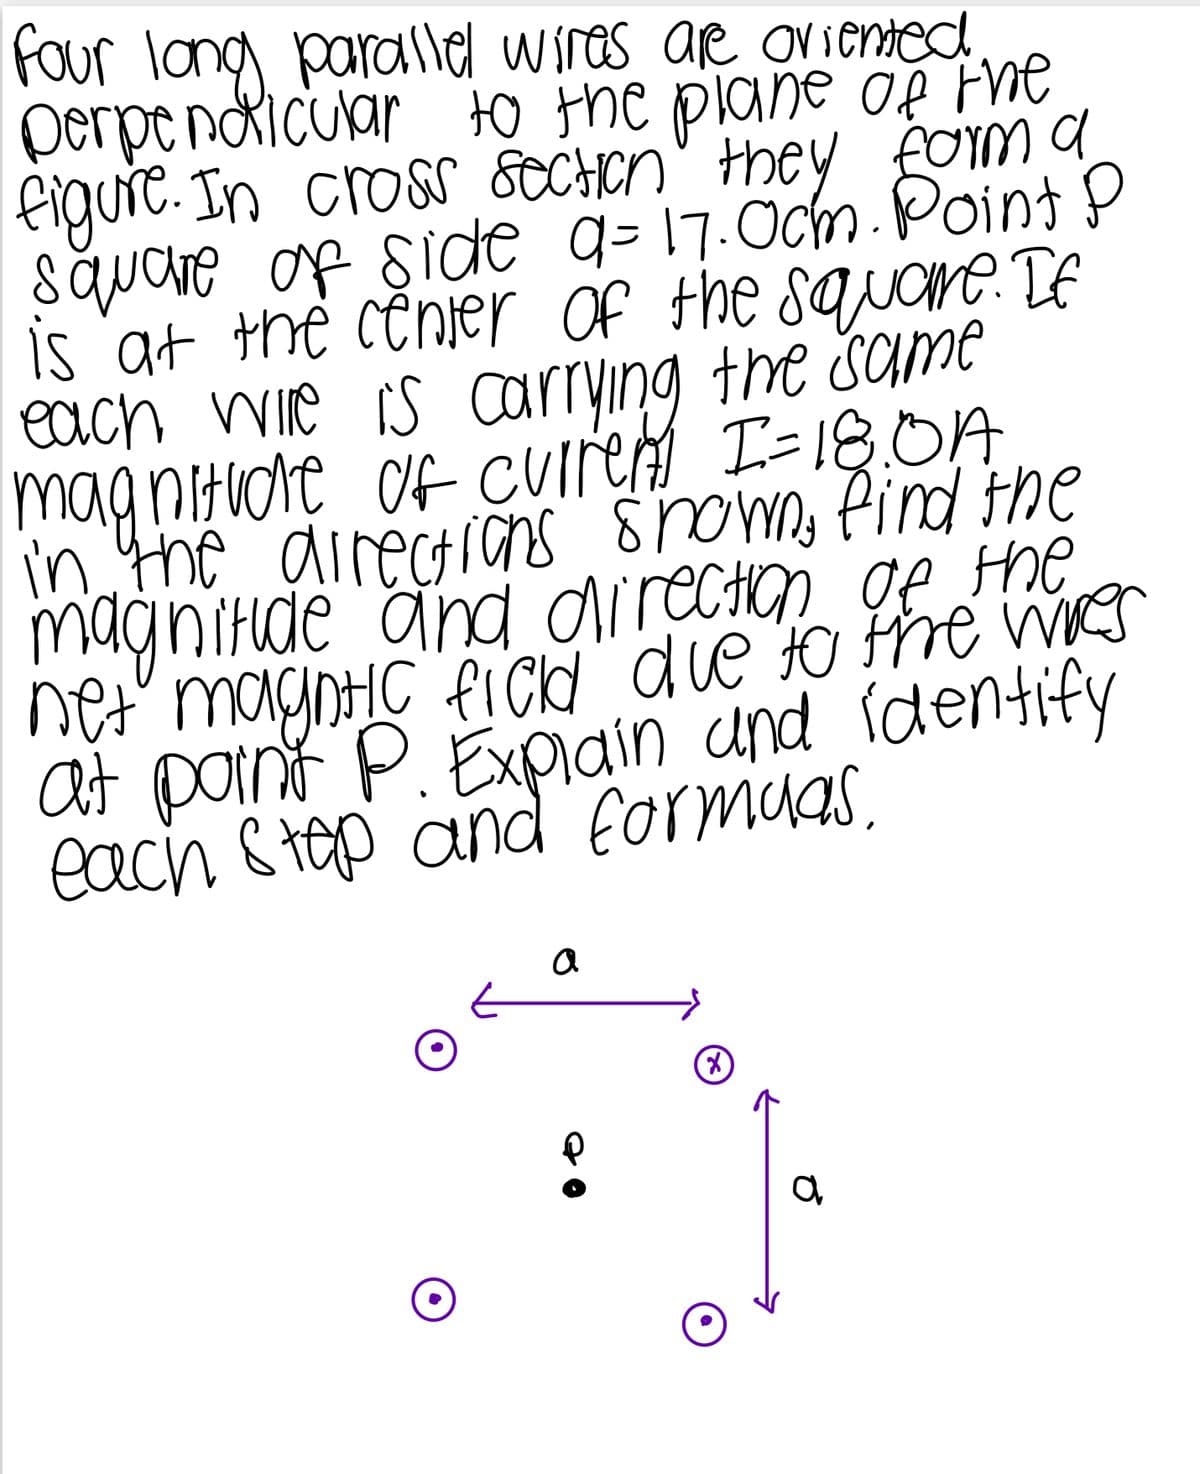 four long parallel wires are oriented
perpendicular to the plane of the
figure. In cross section they form a
square of side a= 17.0cm. Point P
is at the center of the square. If
each wire is carrying the same
magnitude of current I=18.0A
in the directions shown, find the
magnitude and direction of the
net magntic field due to the wires
at point P. Explain and identify
each step and formuas.
a
x
P
a